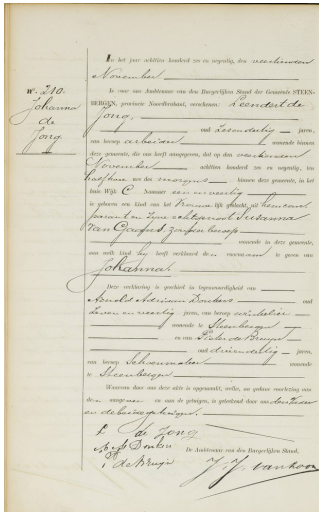 N° 210.
Johanna
de
Jong
In het jaar achttien honderd zes en negentig, den
November
is voor ons Ambtenaar van den Burgerlijken Stand der Gemeente STEEN-
BERGEN, provincie Noordbrabant, verschenen: Leendert de
Jong,
oud zesendertig jaren,
van beroep arbeider wonende binnen
deze gemeente, die ons heeft aangegeven, dat op den
November achttien honderd zes en negentig, ten
half ure des morgens binnen deze gemeente, in het
huis Wijk C Nummer eenenveertig
is geboren een kind van het Vrouwelijk geslacht, uit hem comparant
en zijne echtgenoot Susanna
van Gaagus, zonder beroep
wonende in deze gemeente,
aan welk kind hij heeft verklaard den voornaam te geven van
Johanna
Deze verklaring is geschied in tegenwoordigheid van
Arnold Adriaan Donkers oud
zeven en veertig jaren, van beroep
wonende te Steenbergen
en Pieter de Bruijn
oud drieendertig jaren,
van beroep Schoenmaker wonende
te Steenbergen
Waarvan door ons deze akte is opgemaakt, welke, na gedane voorlezing aan
den aangever en aan de getuigen, is geteekend door ons
en de beide getuigen.
L de Jong
A A Donkers
P de Bruijn
De Ambtenaar van den Burgerlijken Stand,